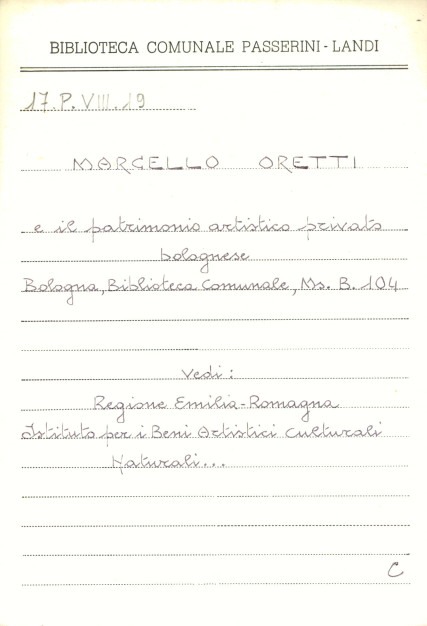 BIBLIOTECA COMUNALE PASSERINI - LANDI
17. P. VIII. 19
MARCELLO ORETTI
e il patrimonio artistico privato
bolognese
Bologna, Biblioteca Comunale, Ms. B. 104
Vedi :
Regione Emilia-Romagna
Istituto per i Beni Artistici Culturali
Naturali...
C